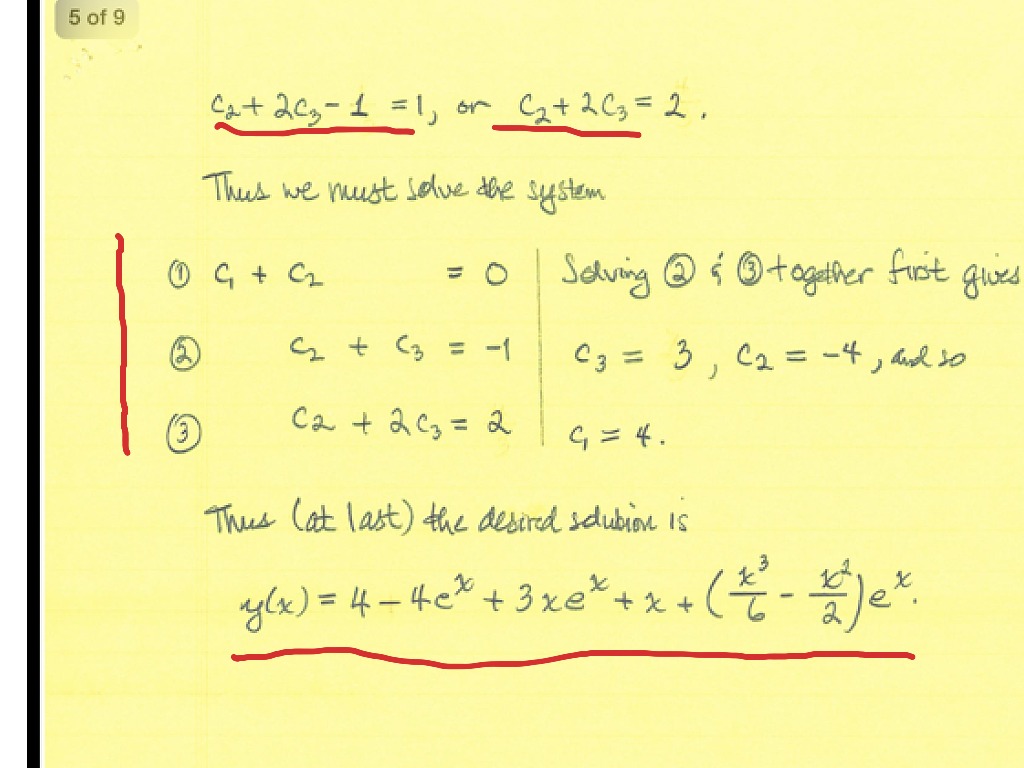 5 of 9
C₂ + 2C₃ - 1 = 1, or C₂ + 2C₃ = 2.
Thus we must solve the system
① C₁ + C₂ = 0
② C₂ + C₃ = -1
③ C₂ + 2C₃ = 2
Solving ② & ③ together first gives
C₃ = 3, C₂ = -4, and so
C₁ = 4.
Thus (at last) the desired solution is
y(x) = 4 - 4eˣ + 3xeˣ + x + (x³/6 - x²/2)eˣ.